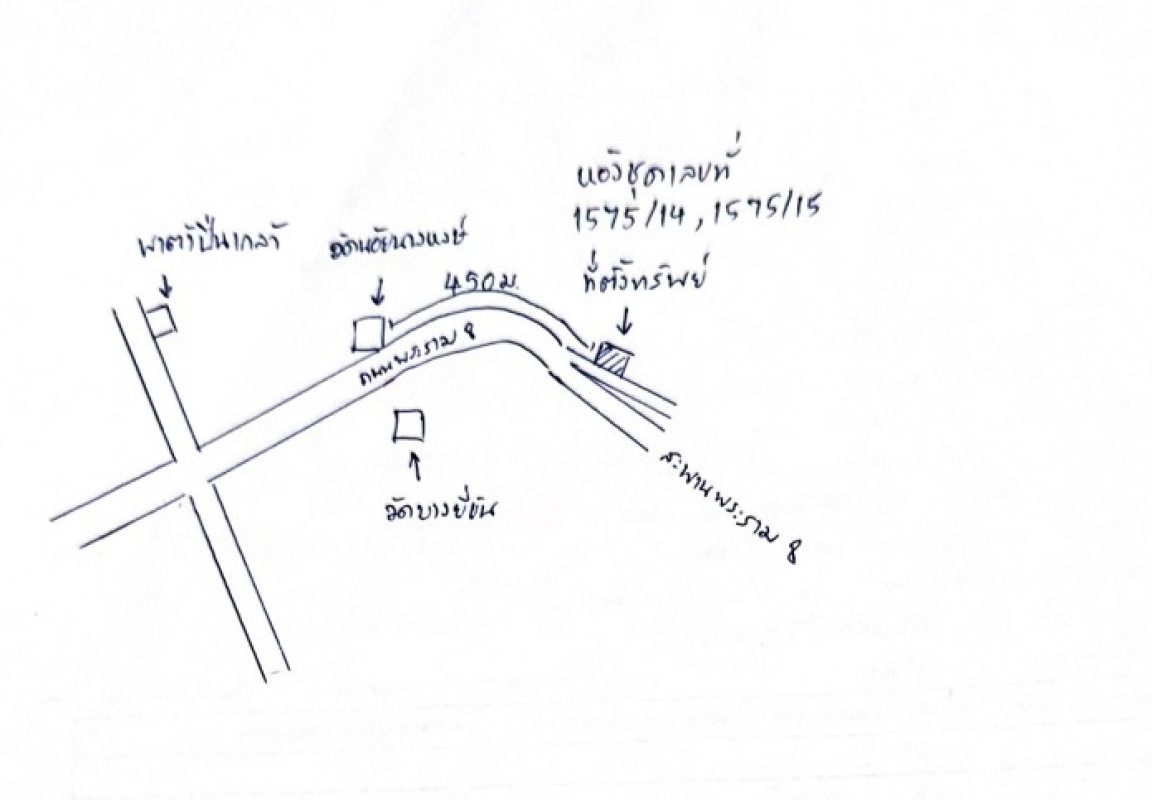 ห้องชุดเลขที่
1575/14 , 1575/15
ที่ตั้งทรัพย์
พาต้าปิ่นเกล้า
วัดน้อยนางหงษ์
450 ม.
ถนนพระราม 8
วัดบางยี่ขัน
สะพานพระราม 8